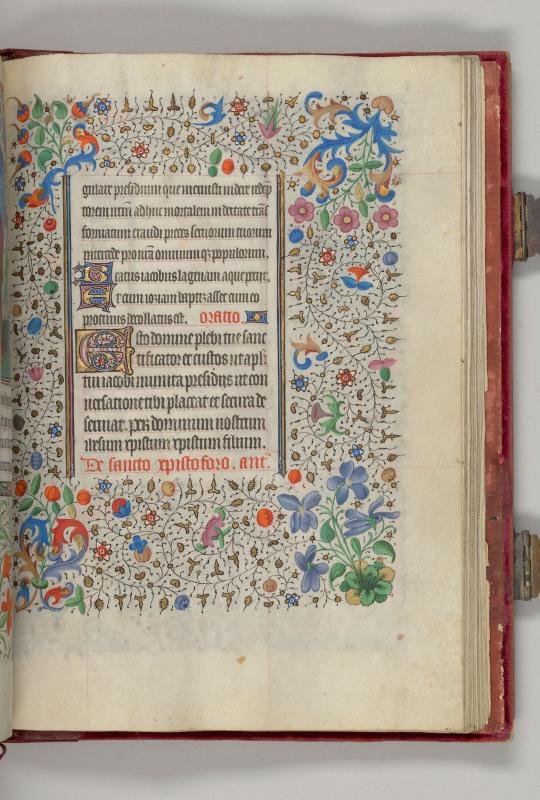 gulare presidium que meruisti videre redēp
torem nrm̄ adhuc mortalem in deitate trāſ
formatum exaudi preces servorum tuorum
pro omnium qz popplorum.
catus iacobus lagenam aque petiit.
Et cum ioziam baptizasset cum eo
protinus decollatus est. Oratio
Esto domine plebi tue sanc
tificator et custos ut apli
tui iacobi munita presidijs et con
versatione tibi placeat et secura de
serviat. Per dominum nostrum
ihesum xpistum xpistum filium.
De sancto xpistoforo. ant.